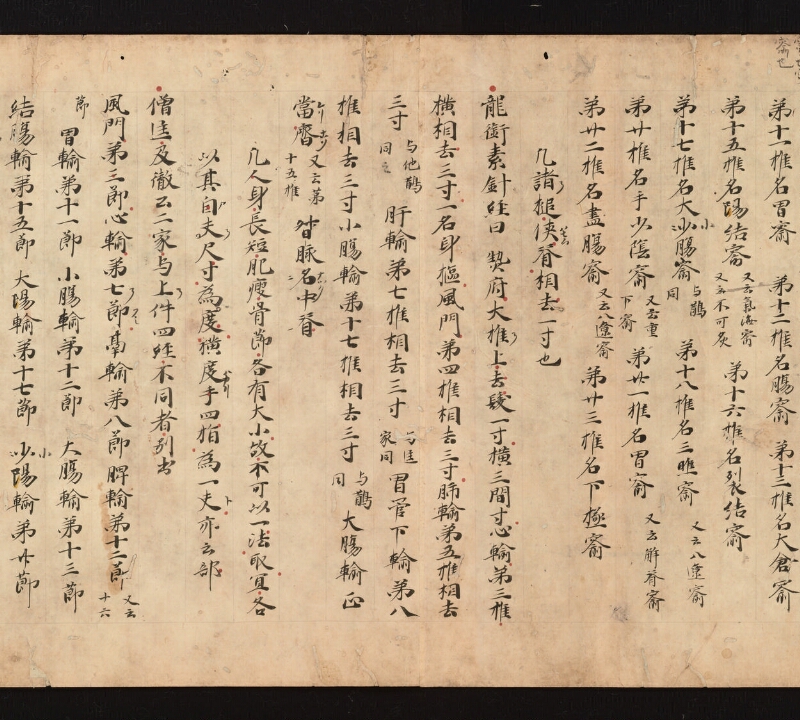 第十一椎名胃窬 第十二椎名腸窬 第十三椎名大倉窬
第十五椎名陽結窬 又云氣海窬 又云不可灸 第十六椎名裂結窬
第十七椎名大小腸窬 与鵲同 第十八椎名三𬛸窬 又云八遼窬
第廿椎名手少陰窬 又云重下窬 第廿一椎名胃窬 又云解脊窬
第廿二椎名盡腸窬 又云八遼窬 第廿三椎名下極窬
凡諸搥侠脊相去一寸也
龍銜素針経曰 募府大椎上去髪一寸横三間寸心輸第三椎
横相去三寸一名身樞風門第四椎相去三寸肺輸第五椎相去
三寸 与他鵲同之 肝輸第七椎相去三寸 与佳家同 胃管下輸第八
椎相去三寸小腸輸第十七椎相去三寸 与鵲同 大腸輸正
當齊 又云第十五椎 脊脉名中脊
凡人身長短肥瘦骨節各有大小故不可以一法取宜各
以其自夫尺寸為度横度手四指為一夫亦云部
僧佳度徹公二家与上件四経不同者別出
風門第三節心輸第七節鬲輸第八節脾輸第十二節 又云十六
節 胃輸第十一節 小腸輸第十二節 大腸輸第十三節
結腸輸第十五節 大陽輸第十七節 少陽輸第廿節